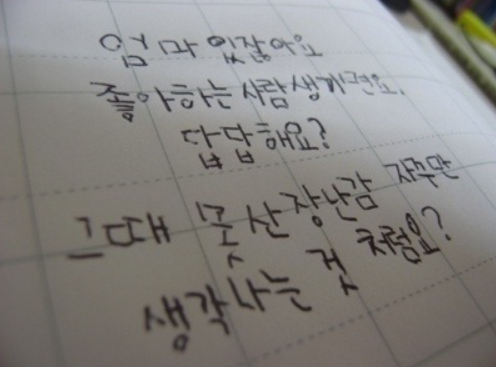 엄마 있잖아요
좋아하는 사람 생기면요.
답답해요?
그때 못 산 장난감 자꾸만
생각나는 것 처럼요?